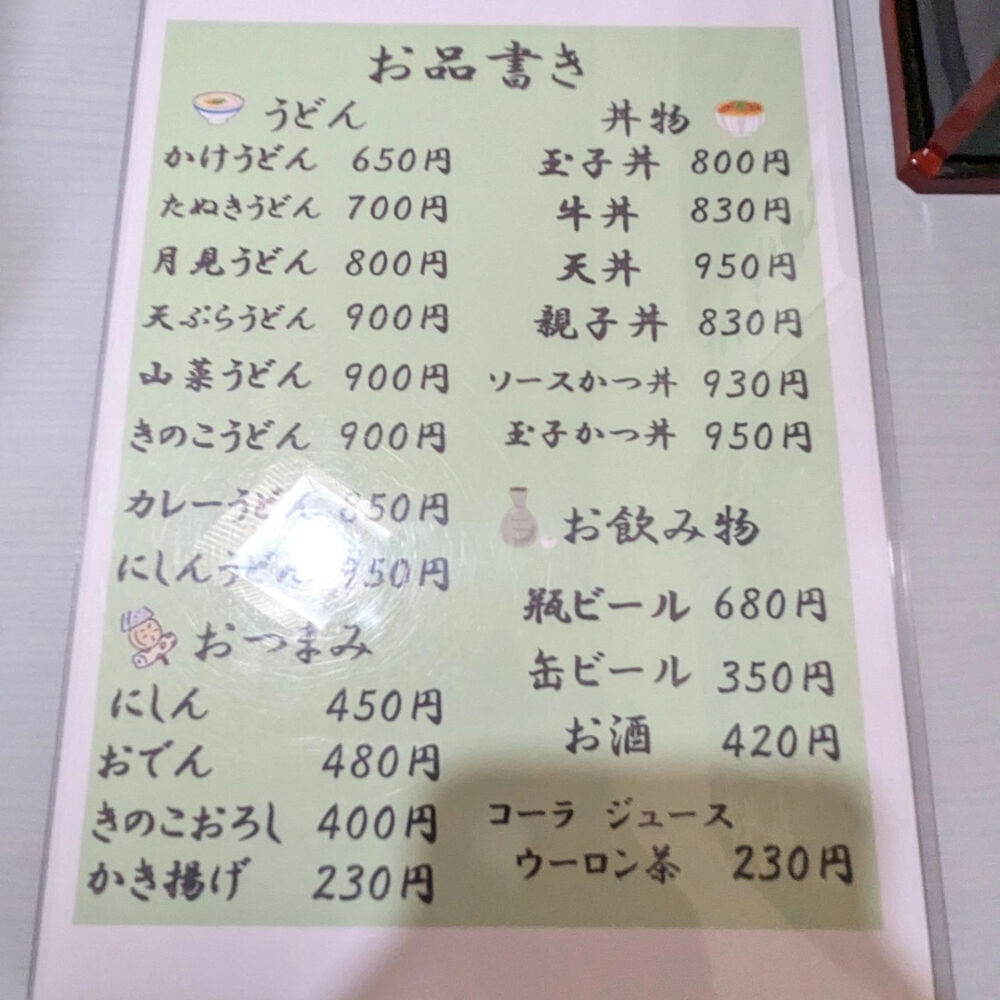 お品書き
うどん
かけうどん 650円
たぬきうどん 700円
月見うどん 800円
天ぷらうどん 900円
山菜うどん 900円
きのこうどん 900円
カレーうどん 850円
にしんうどん 950円
おつまみ
にしん 450円
おでん 480円
きのこおろし 400円
かき揚げ 230円
丼物
玉子丼 800円
牛丼 830円
天丼 950円
親子丼 830円
ソースかつ丼 930円
玉子かつ丼 950円
お飲み物
瓶ビール 680円
缶ビール 350円
お酒 420円
コーラ ジュース
ウーロン茶 230円